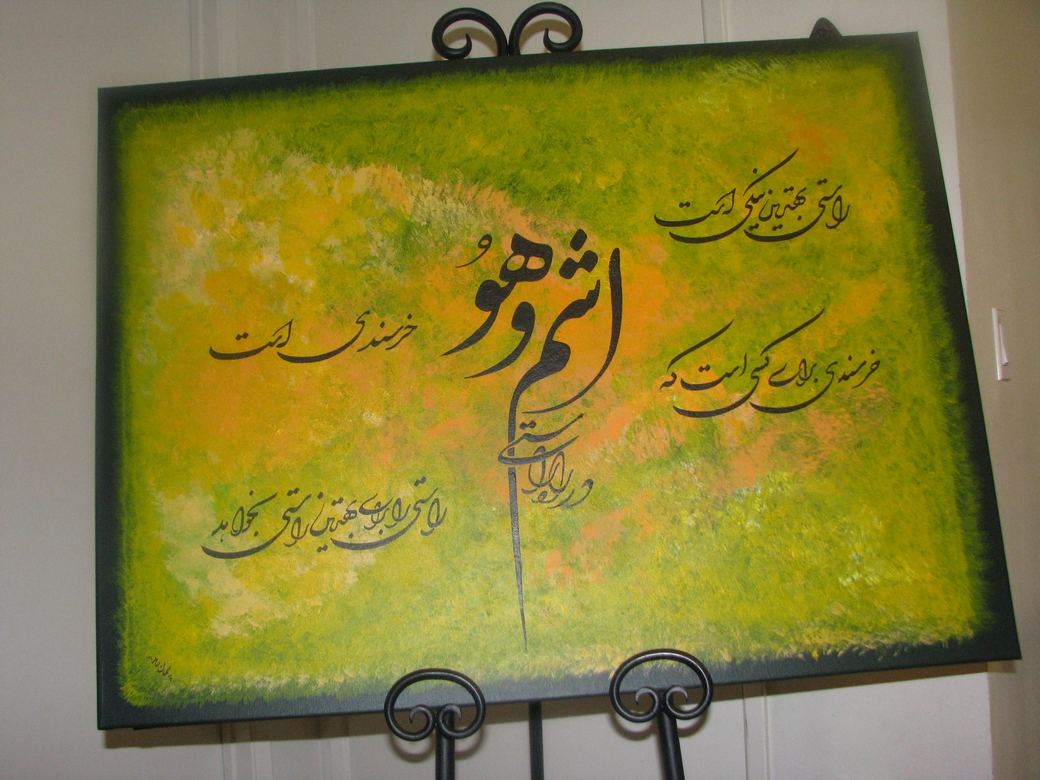 راستی بهترین نیکی است
اشم وهو
خرسندی است
خرسندی برای کسی است که
راستی را برای بهترین راستی بخواهد